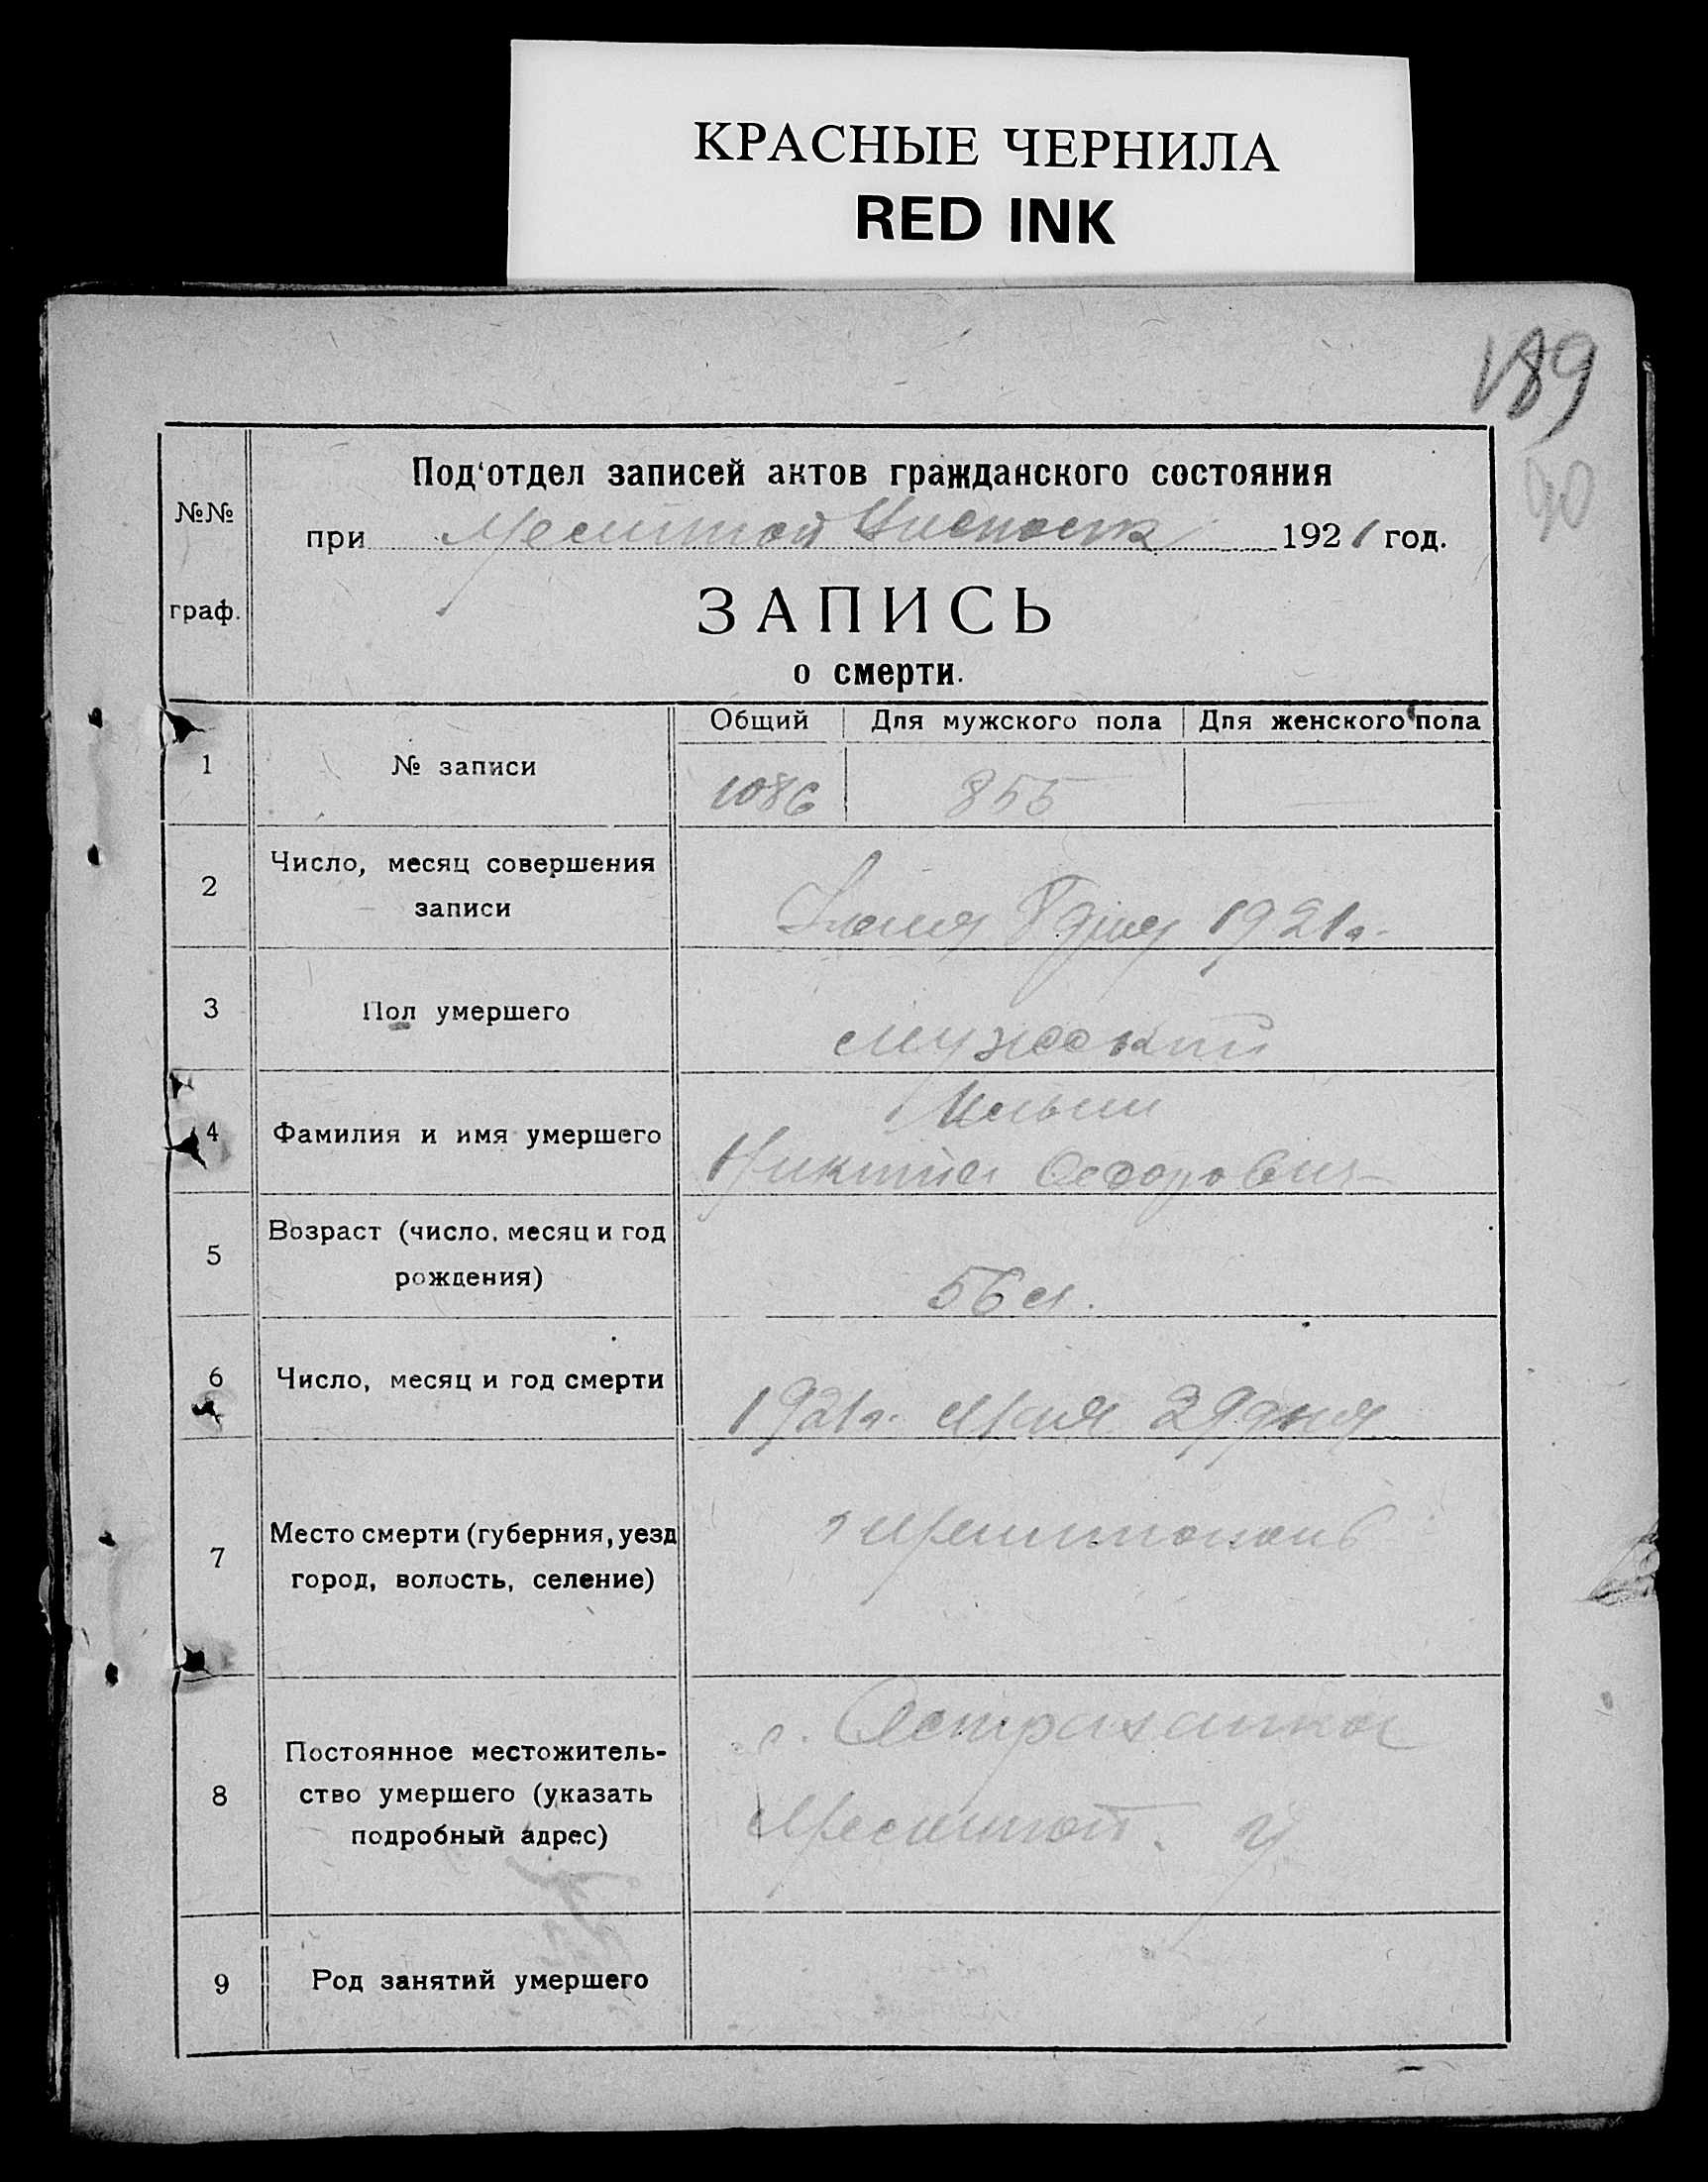 КРАСНЫЕ ЧЕРНИЛА
RED INK
189
90
Под'отдел записей актов гражданского состояния
№№
при Мелитоп Уисполк 1921 год.
граф.
ЗАПИСЬ
о смерти.
Общий Для мужского пола Для женского пола
1 № записи 1086 855
2 Число, месяц совершения
записи
1921г.
3 Пол умершего мужской
4 Фамилия и имя умершего
Ильин
Никита Федорович
5 Возраст (число, месяц и год
рождения)
56 л.
6 Число, месяц и год смерти 1921г. Мая 29 дня
7 Место смерти (губерния, уезд
город, волость, селение)
г Мелитополь
8 Постоянное местожитель-
ство умершего (указать
подробный адрес)
с. Астраханка
Мелитоп. у.
9 Род занятий умершего